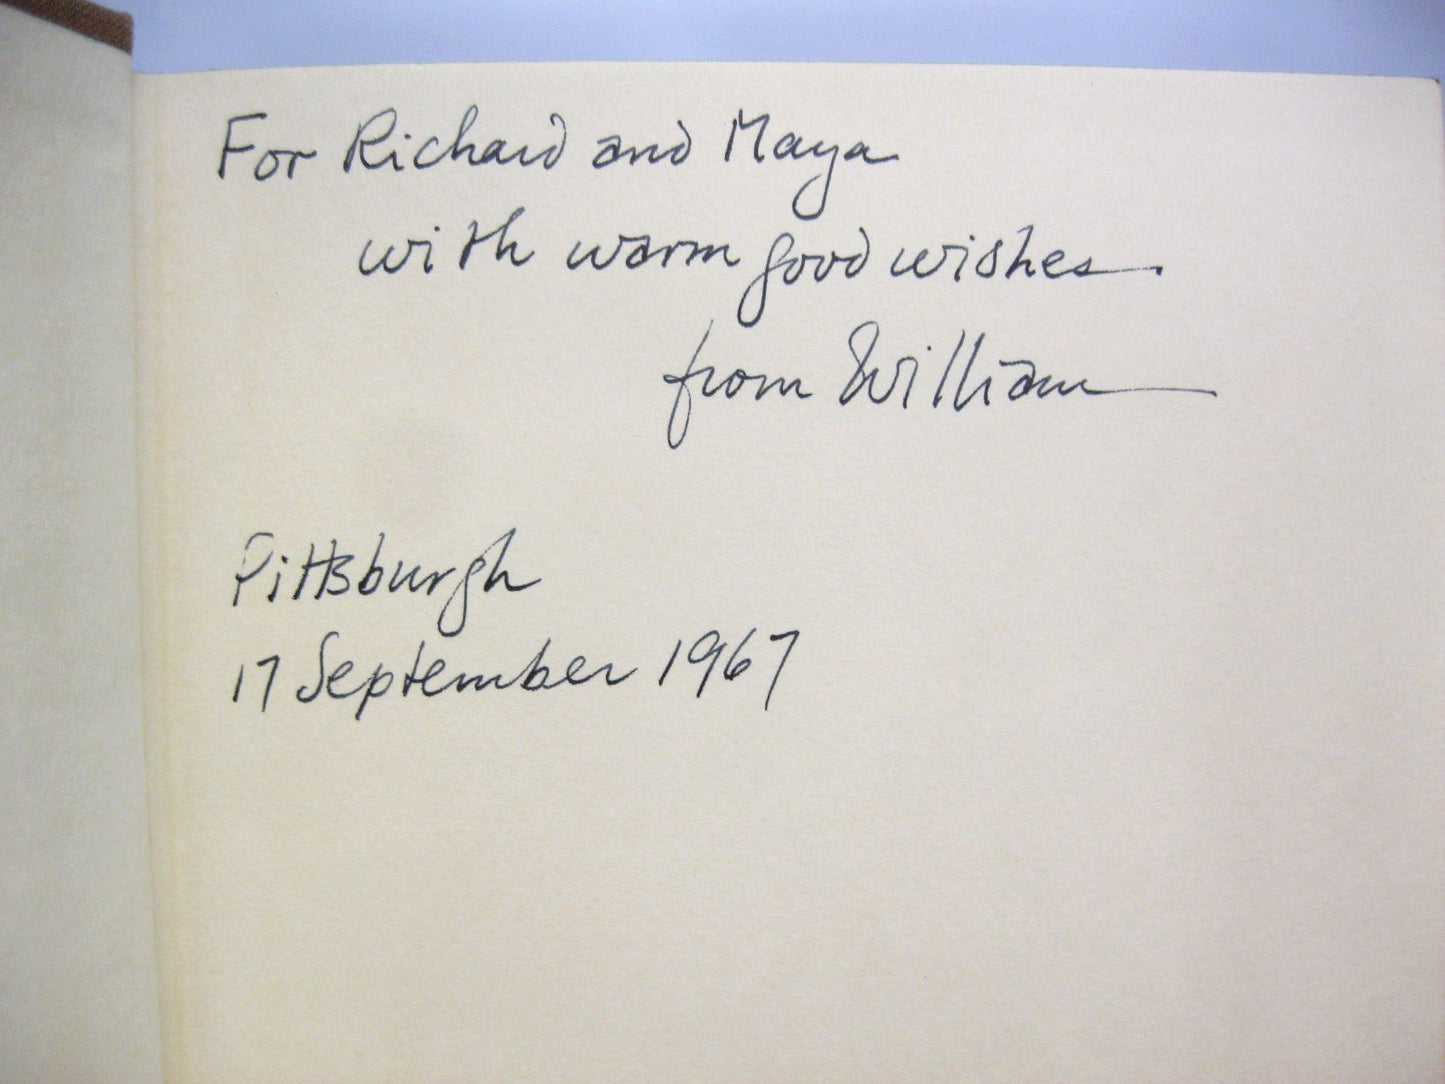 For Richard and Maya
with warm good wishes.
from William
Pittsburgh
17 September 1967